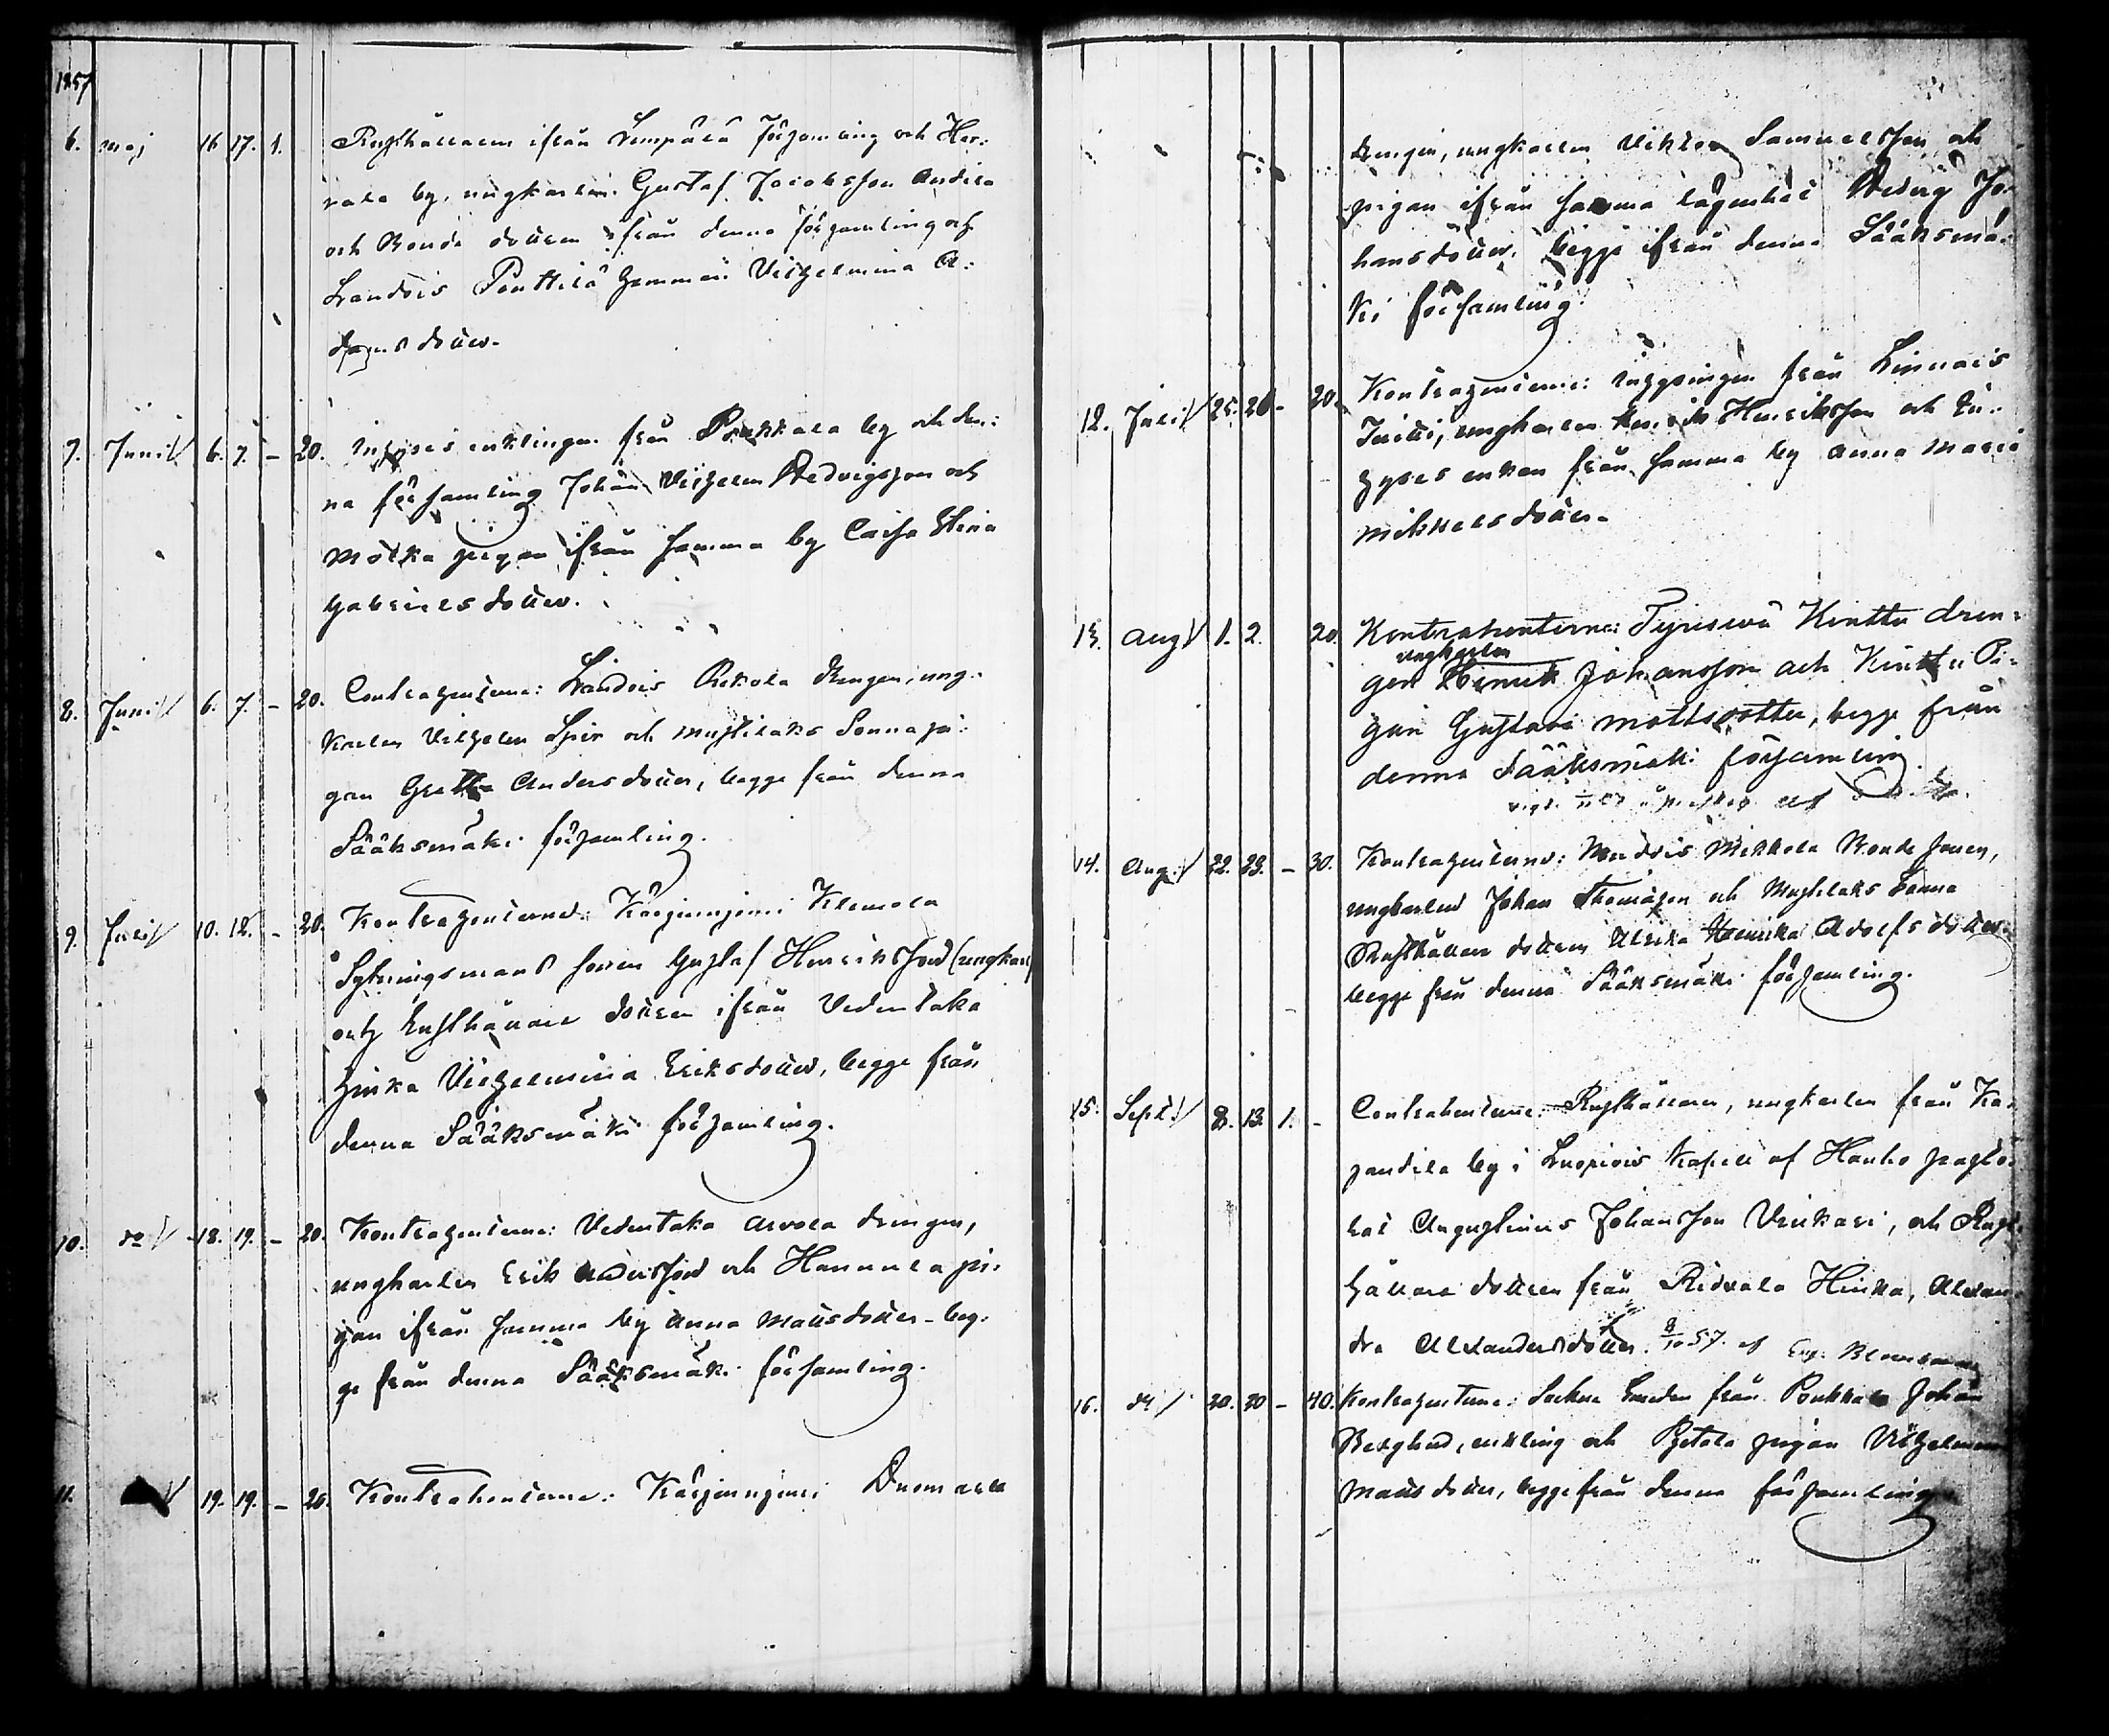 1857
6. maj 16 17. 1. Rusthållaren ifrån Lempälä församling och Her:
rala by, ungkarlen Gustaf Jacobsson Andila
och Bonde dottren ifrån denna församling och
Landois Penttilä hemman Vilhelmina A:
dams dotter.
7. Junii 6. 7. – 20. Inhyses enklingen från Pakkala by och den:
na församling Johan Vilhelm Hedvigsson och
pigan ifrån samma by Caisa Stina
Gabriels dotter.
8. Junii 6. 7. – 20. Contragenterne: Landois Rekola drengen, ung-
karlen Vilhelm Spir och Mustilaks Sonna pi:
gan Greta Anders dotter, begge från denna
Sääksmäki församling.
9. Julii 10. 12. – 20. Kontragenterne: Kärjenniemi Klemola
Sytningsmans sonen Gustaf Henriksson (ungkarl)
och Rusthållare dottren ifrån Vedentaka
Hinka Vilhelmina Eriksdotter, begge från
denna Sääksmäki församling.
10. do 18. 19. – 20. Kontragenterne: Vedentaka Arvola drengen,
ungkarlen Erik Andersson och Hannula pi:
gan ifrån samma by Anna Mattsdotter – beg:
ge från denna Sääksmäki församling.
11. 19. 19. – 20. Kontrahenterne: Kärjenniemi
drengen, ungkarlen Viktor Samuelsson, och
pigan ifrån samma lägenhet Hedvig Jo:
hansdotter. begge ifrån denna Sääksmä:
ki församling.
12. Julii 25. 26 – 20. Kontragenterne: från Linnais
ungkarlen Henrik Henriksson och In:
hyses enkan från samma by Anna Maria
Mikkelsdotter.
13. Aug 1. 2. 20. Kontrahenterne: Tyrisevä Kinttu dren:
ungkarlen
gen Henrik Johansson och Kinttu Pi:
gan Gustava Mattsdotter, begge från
denna Sääksmäki församling.
14. Aug. 22. 23. – 30. Kontragenterne: Mikkola Bonde sonen,
ungkarlen Johan Thomasson och Mustilaks Sonna
Rusthållare dottren Ulrika Henrika Adolfs dotter
begge från denna Sääksmäki församling.
15. Sept. 8. 13. 1. – Contrahenterne: Rusthållaren, ungkarlen från Ka:
by i Luopiois Kapell af Hauho pasto:
rat Augustinus Johansson Uusikari, och Rust:
hållare dottren från Ridvala Hinka, Alexan:
dra Alexandersdotter. 8/10 57. af
16. 20. 20 – 40. Kontragenterne: Sockne Smeden från Pakkala Johan
Berglund, enkling och pigan Vilhelmina
Mattsdotter, begge från denna församling